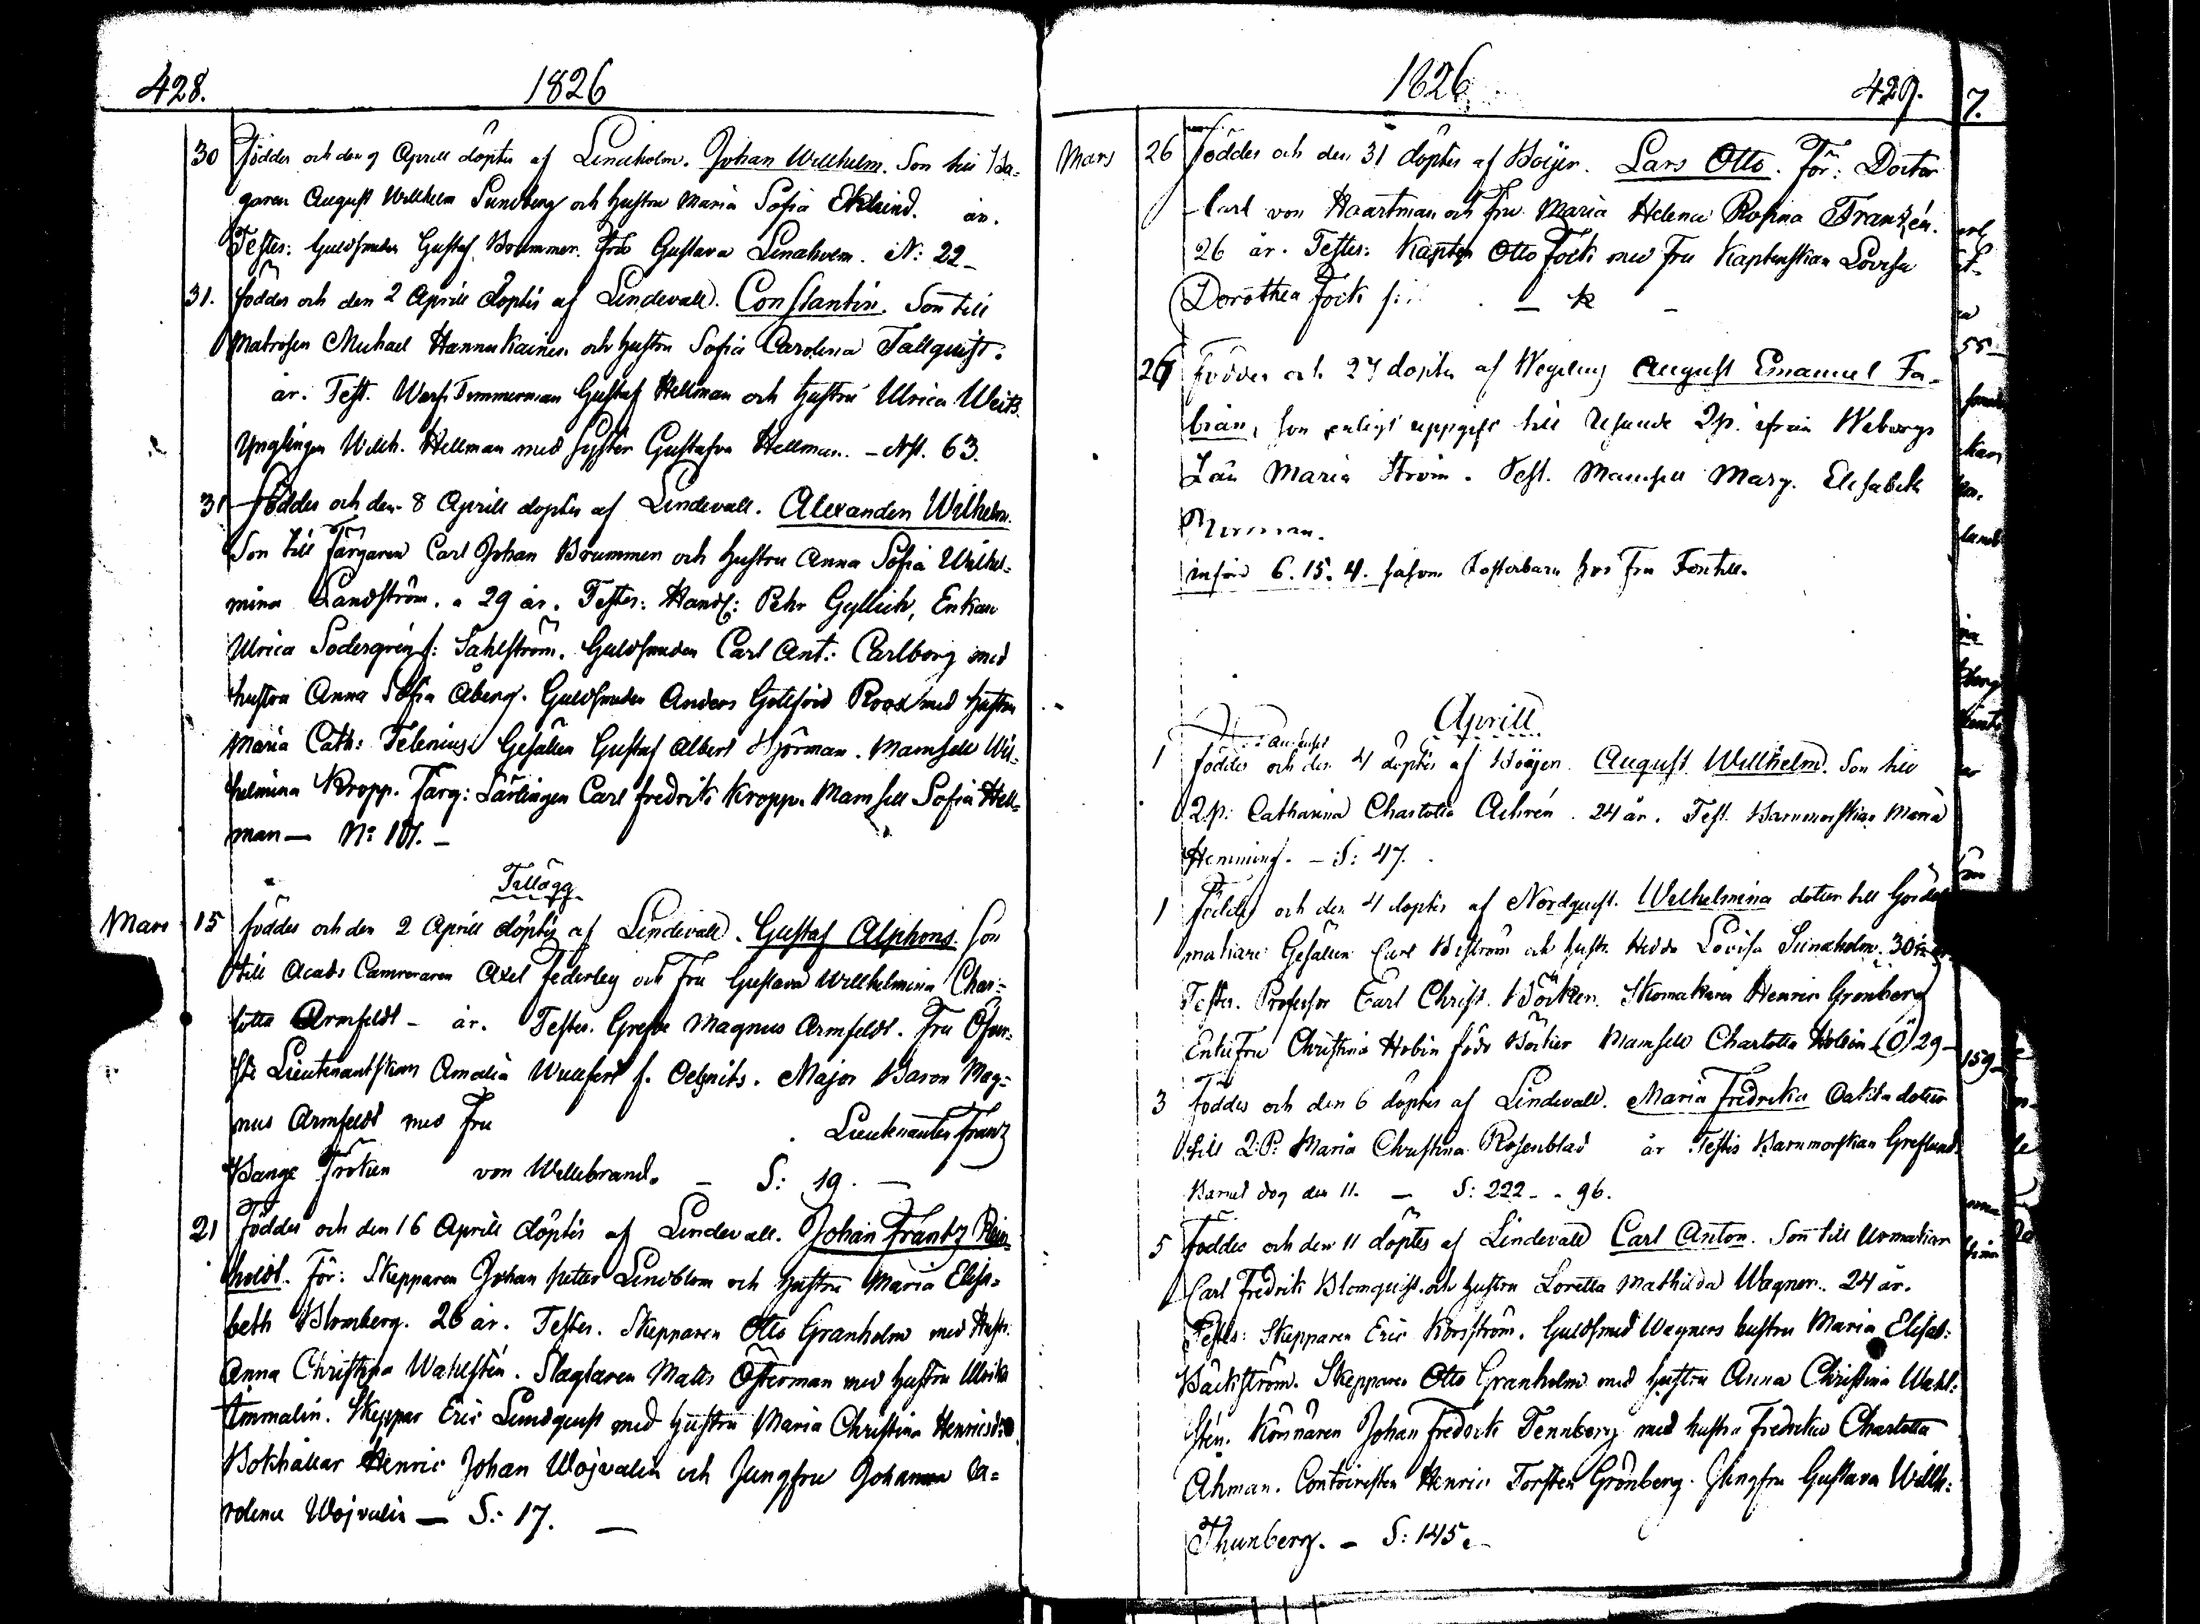 428. 1826
30 föddes och den 9 Aprill döptes af Lindholm. Johan Willhelm. Son till Ba-
garen August Willhelm Sundberg och hustru Maria Sofia Eklind. år.
Testes: Guldsmeden Gustaf Brummer. Fru Gustava Lindholm. N: 22-
31. föddes och den 2 Aprill döptes af Lindevall. Constantin. Son till
Matrosen Michael Hannukainen och hustru Sofia Carolina Tallquist.
år. Test. Warfs Timmerman Gustaf Hellman och hustru Ulrica Weits.
Ynglingen Wilh. Hellman med syster Gustafva Hellman. - Nst. 63.
31 föddes och den 8 Aprill döptes af Lindevall. Alexander Wilhelm.
Son till Färgaren Carl Johan Brummer och hustru Anna Sofia Wilhel-
mina Landström. 29 år. Testes: Handl: Pehr Gyllich, Enkan
Ulrica Södergren f: Sahlström. Guldsmeden Carl Ant: Carlborg med
hustru Anna Sofia Åberg. Guldsmeden Anders Gottfrid Roos med hustru
Maria Cath: Telenius. Gesällen Gustaf Albert Hjörman. Mamsell Wil-
helmina Kropp. Färg: Lärlingen Carl Fredrik Kropp. Mamsell Sofia Hell-
man — No 101. -
Tillägg
Mars 15 föddes och den 2 Aprill döptes af Lindevall. Gustaf Alphons. Son
till Acad: Camreraren Axel Federley och Fru Gustava Willhelmina Char-
lotta Armfeldt - år. Testes. Grefve Magnus Armfeldt. Fru Öfver-
ste Lieutenantskan Amalia Wulffert f. Oebnits. Major Baron Mag-
nus Armfeldt med Fru Lieutenanten Frantz
Bange Fröken von Willebrand. - S: 19. -
21 Föddes och den 16 Aprill döptes af Lindevall. Johan Frantz Rein-
holdt. För: Skepparen Johan Petter Lindblom och hustru Maria Elisa-
beth Blomberg. 26 år. Testes. Skepparen Otto Granholm med Hustr.
Anna Christina Wahlstén. Slagtaren Matts Österman med hustru Ulrika
Timmalin. Skeppar Eric Lundquist med hustru Maria Christina Henricsd:
Bokhållar Henric Johan Wojvalin och Jungfru Johanna Ca-
rolina Wojvalin — S: 17. —
1826 429.
Mars 26 föddes och den 31 döptes af Boijer. Lars Otto. För: Doctor
Carl von Haartman och Fru Maria Helena Rosina Franzén.
26 år. Testes: Kapten Otto Fock med Fru Kaptenskan Lovisa
Dorothea Fock f:
26 Föddes och 27 döptes af Wegelius August Emanuel Fa-
bian, son enligt uppgift till resande Qp. ifrån Wiborgs
Län Maria . Test. Mamsell Marg. Elisabeth
införd 6. 15. 4. såsom Fosterbarn hos Fru Fontell.
Aprill
1 föddes och den 4 döptes af Boijer. August Willhelm. Son till
Q.p: Catharina Charlotta Achrén. 24 år. Test. Barnmorskan Maria
Hemming. - S: 47.
1 Föddes och den 4 döptes af Nordquist. Wilhelmina dotter till Gördel
makare Gesällen Carl och hustr. Hedda Lovisa Lindholm. 30
Testes. Professor Carl Christ. Böcker. Skomakaren Henric Grönberg
Enkefru Christina Hobin född Böcker Mamsell Charlotta Hobin (Ö) 29-
3 föddes och den 6 döptes af Lindevall. Maria Fredrika Oäkta dotter
till Q:P: Maria Christina Rosenblad år Testes Barnmorskan Greflund.
Barnet dog den 11. — S: 222 - 96.
5 föddes och den 11 döptes af Lindevall Carl Anton. Son till Urmakar
Carl Fredrik Blomquist. och hustru Loretta Mathilda Wagner. 24 år.
Testes: Skepparen Eric Korsström. Guldsmed Wagners hustru Maria Elisab:
Bäckström. Skepparen Otto Granholm med hustru Anna Christina Wahl-
stén. Körsnären Johan Fredrik Tennberg med hustru Fredrika Charlotta
Åhman. Contoiristen Henric Torsten Grönberg. Jungfru Gustava Willh:
Thunberg. - S: 145.-